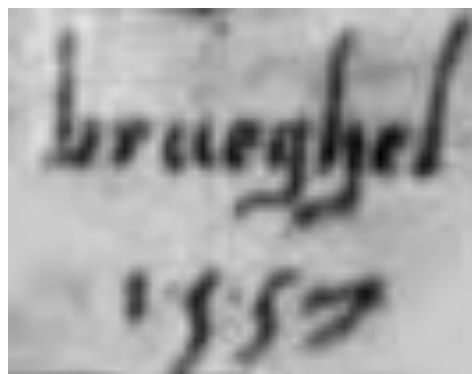 brueghel
1557